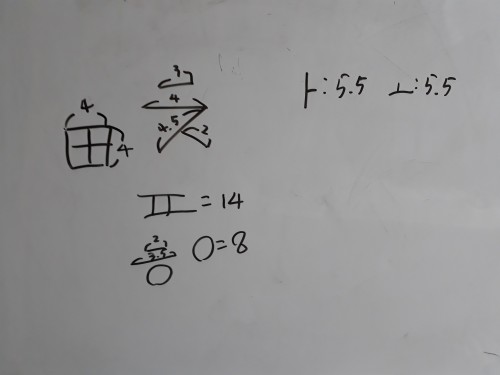 3
ㅏ: 5.5 ㅗ: 5.5
4
4
4.5
2
田
4
ㅍ = 14
2
3.5
ㅇ ㅇ=8